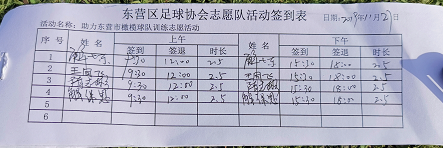 东营区足球协会志愿队活动签到表
活动名称：助力东营市橄榄球队训练志愿活动 日期：2019年11月2日
上午 下午
序号 姓名 签到 签退 时长 姓名 签到 签退 时长
1 9:30 12:00 2.5 15:30 18:00 2.5
2 9:30 12:00 2.5 15:30 18:00 2.5
3 9:30 12:00 2.5 15:30 18:00 2.5
4 9:30 12:00 2.5 15:30 18:00 2.5
5
6